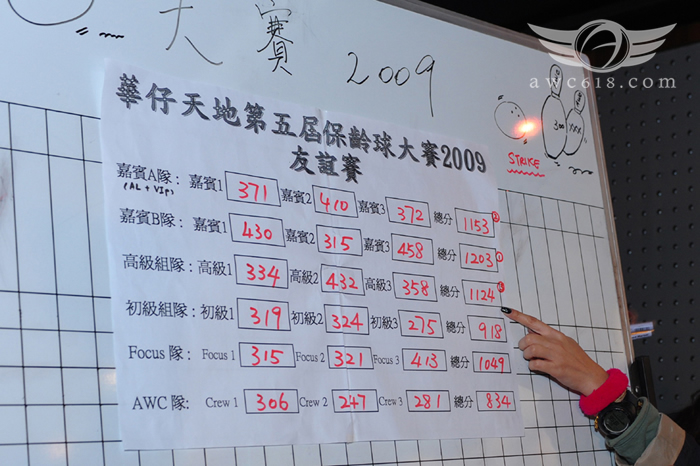 大賽 2009
awc618.com
300 XXX
STRIKE
華仔天地第五屆保齡球大賽2009
友誼賽
嘉賓A隊: 嘉賓1 371 嘉賓2 410 嘉賓3 372 總分 1153 2
(AL + VIP)
嘉賓B隊: 嘉賓1 430 嘉賓2 315 嘉賓3 458 總分 1203 1
高級組隊: 高級1 334 高級2 432 高級3 358 總分 1124 3
初級組隊: 初級1 319 初級2 324 初級3 275 總分 918
Focus 隊: Focus 1 315 Focus 2 321 Focus 3 413 總分 1049
AWC 隊: Crew 1 306 Crew 2 247 Crew 3 281 總分 834